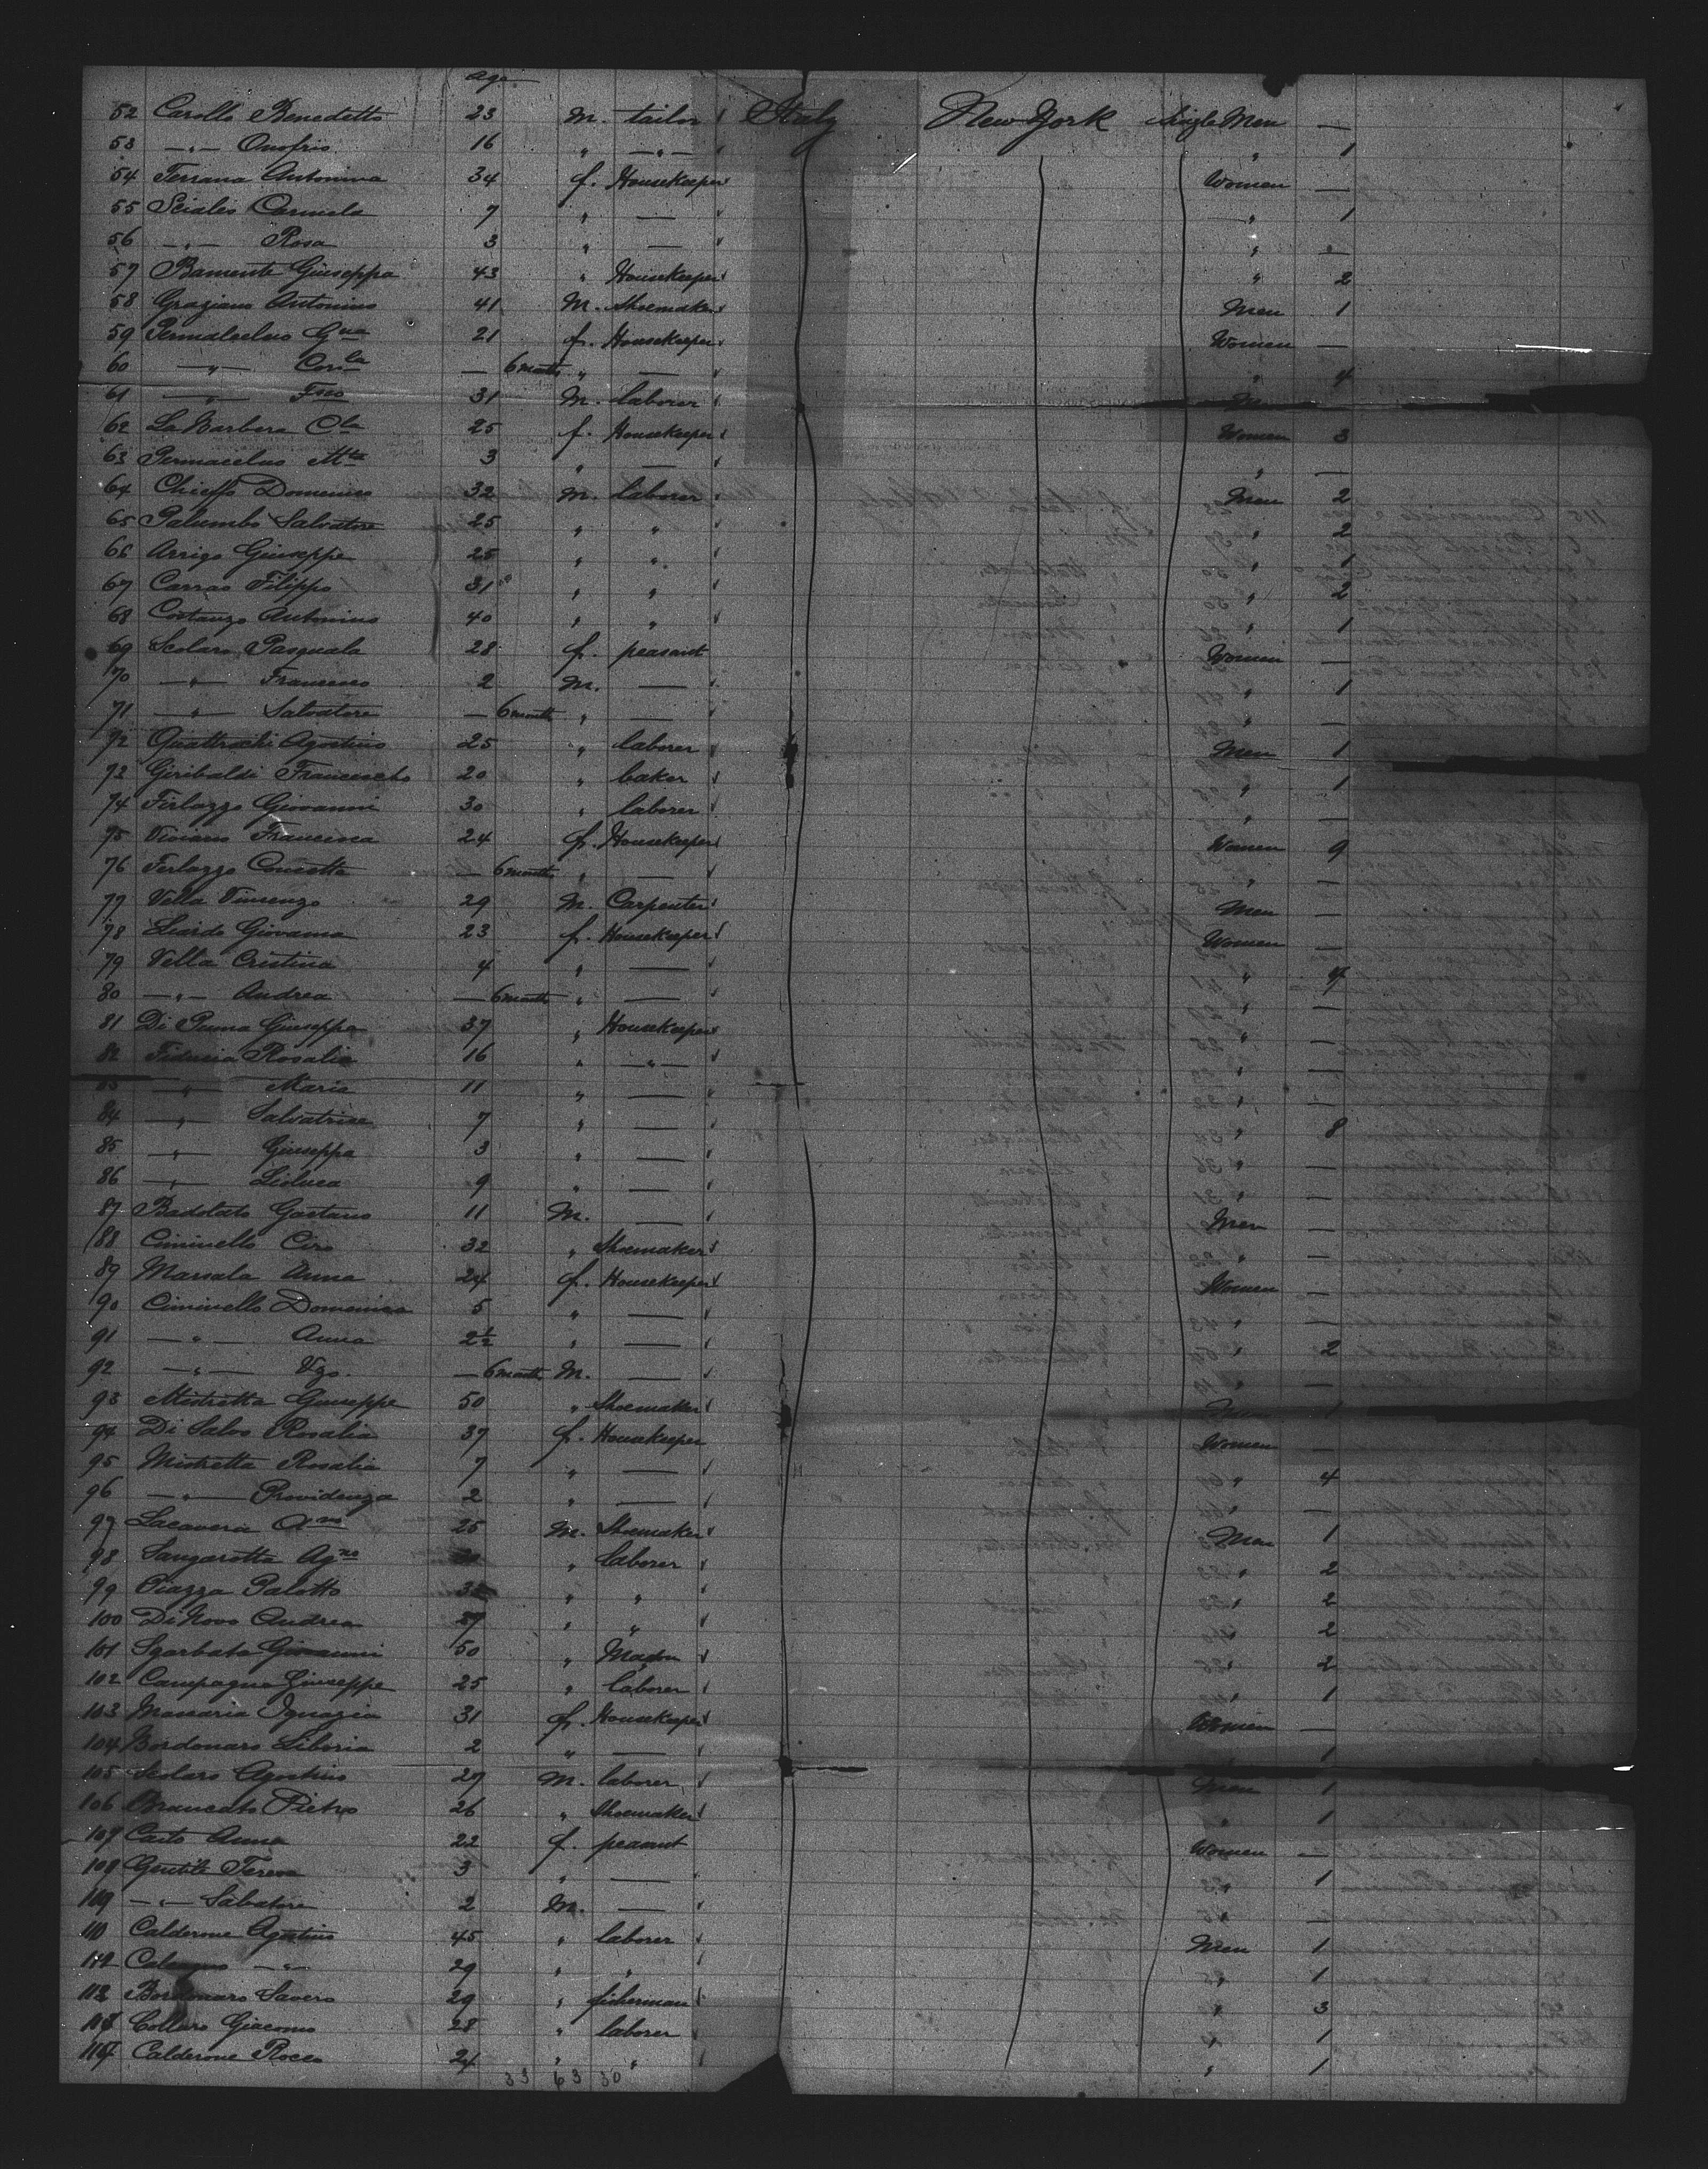 Age
52 Carollo Benedetto 23 M. tailor Italy New York Single Men —
53 —"— Onofrio 16 " —"— " 1
54 Terrana Antonina 34 f. Housekeeper Women —
55 Scialis Carmela 7 " — " 1
56 —"— Rosa 3 " — " —
57 Bamente Giuseppa 43 " Housekeeper " 2
58 Graziano Antonino 41 M. Shoemaker Men 1
59 21 f. Housekeeper Women —
60 —"— — 6 month " — " 4
61 —"— Fsco 31 M. laborer Men
62 La Barbera Cla 25 f. Housekeeper Women 3
63 3 " — " —
64 Chieffo Domenico 32 M. laborer Men 2
65 Palumbo Salvatore 25 " " " 2
66 Arrigo Giuseppe 25 " " " 1
67 Carrao Filippo 31 " " " 2
68 Costanzo Antonino 40 " " " 1
69 Scolaro Pasquala 28 f. peasant Women —
70 —"— Francesco 2 M. — " 1
71 —"— Salvatore — 6 month " — " —
72 Quattrochi Agostino 25 " laborer Men 1
73 Giribaldi Francescho 20 " baker " 1
74 Firlazzo Giovanni 30 " laborer " —
75 Viviano Francesca 24 f. Housekeeper Women 9
76 Ferlazzo Concetta — 6 month " — " —
77 Vella Vincenzo 29 M. Carpenter Men —
78 Liardo Giovanna 23 f. Housekeeper Women —
79 Vella Cristina 4 " — " 4
80 —"— Andrea — 6 month " — " —
81 Di Puma Giuseppa 37 " Housekeeper " —
82 Fiduria Rosalia 16 " —"— " —
83 —"— Maria 11 " — " —
84 —"— Salvatrice 7 " — " 8
85 —"— Giuseppa 3 " — " —
86 —"— 9 " — " —
87 Badolato Gaetano 11 M. — Men —
88 Ciminello Ciro 32 " Shoemaker " —
89 Marsala Anna 24 f. Housekeeper Women —
90 Ciminello Domenica 5 " — " —
91 —"— Anna 2½ " — " 2
92 —"— Vgo. — 6 month M. — " —
93 Mistretta Giuseppe 50 " Shoemaker Men 1
94 Di Salvo Rosalia 37 f. Housekeeper Women
95 Mistretta Rosalia 7 " — " 4
96 —"— Providenza 2 " — " —
97 Lacavera Ano 25 M. Shoemaker Men 1
98 Sangarotta Agno " laborer " 2
99 Piazza Palotto " " " 2
100 Di Novo Andrea 27 " " " 2
101 Sgarbata Giovanni 50 " Mason " 2
102 Campagna Giuseppe 25 " laborer " 1
103 Massaria Ignazia 31 f. Housekeeper Women —
104 Bordonaro Liboria 2 " — " 1
105 Scolaro Agostino 27 M. laborer Men 1
106 Brancato Pietro 26 " Shoemaker " 1
107 Caito Anna 22 f. peasant Women —
108 Gentile Teresa 3 " — " 1
109 —"— Salvatore 2 M. — " —
110 Calderone Agostino 45 " laborer Men 1
—"— 29 " " " 1
Bordonaro Savero 29 " fisherman " 3
Collaro Giacomo 28 " laborer " 1
114 Calderone Rocco 24 " " " 1
33 63 30